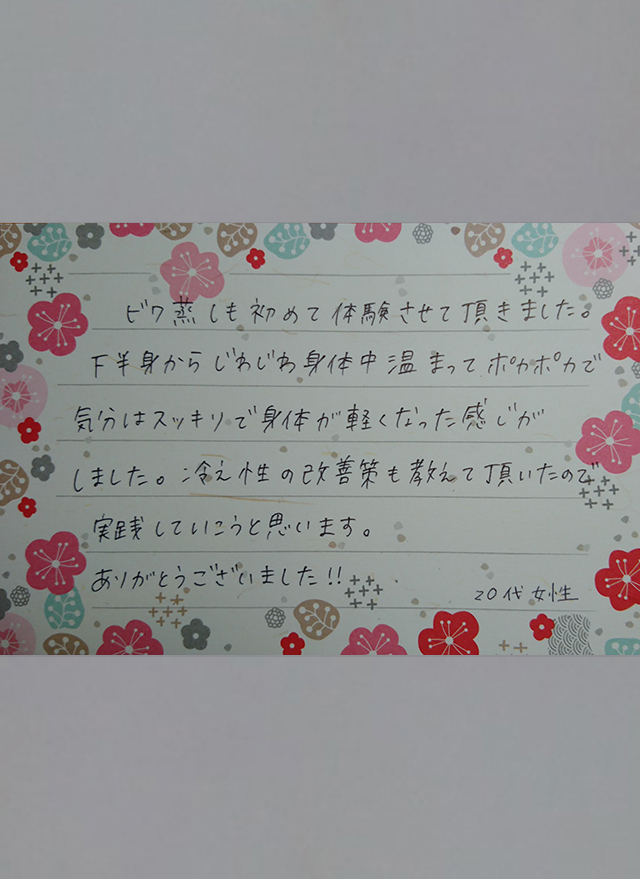 ビワ蒸しも初めて体験させて頂きました。
下半身からじわじわ身体中温まってポカポカで
気分はスッキリで身体が軽くなった感じが
しました。冷え性の改善策も教えて頂いたので
実践していこうと思います。
ありがとうございました!!
20代女性